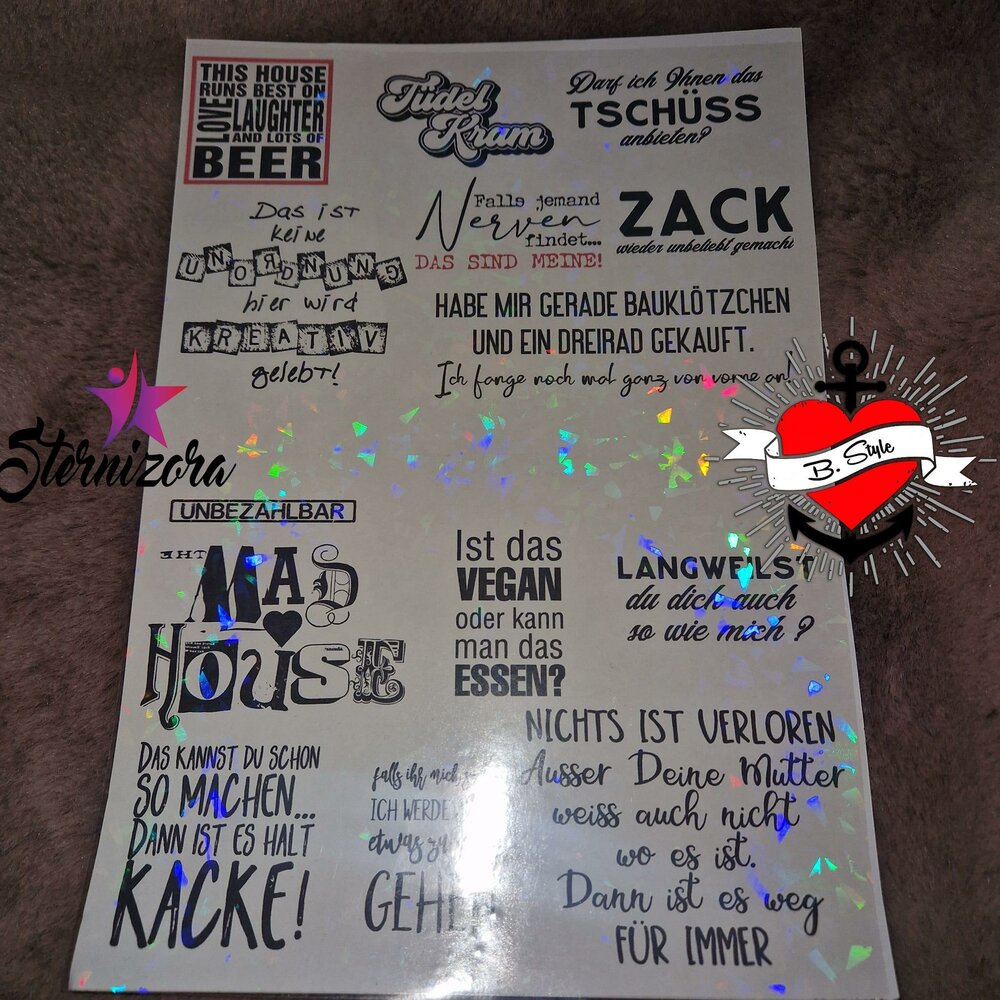 THIS HOUSE
RUNS BEST ON
LOVE LAUGHTER
AND LOTS OF
BEER
Tüdel
Kram
Darf ich Ihnen das
TSCHÜSS
anbieten?
Das ist
keine
UNORDNUNG
hier wird
KREATIV
gelebt!
Falls jemand
Nerven
findet...
DAS SIND MEINE!
ZACK
wieder unbeliebt gemacht
HABE MIR GERADE BAUKLÖTZCHEN
UND EIN DREIRAD GEKAUFT.
Ich fange noch mal ganz von vorne an!
Sternizora
B. Style
UNBEZAHLBAR
THE MAD
HOUSE
Ist das
VEGAN
oder kann
man das
ESSEN?
LANGWEILST
du dich auch
so wie mich ?
DAS KANNST DU SCHON
SO MACHEN...
DANN IST ES HALT
KACKE!
falls ihr mich
ICH WERDE
etwas
NICHTS IST VERLOREN
Ausser Deine Mutter
weiss auch nicht
wo es ist.
Dann ist es weg
FÜR IMMER